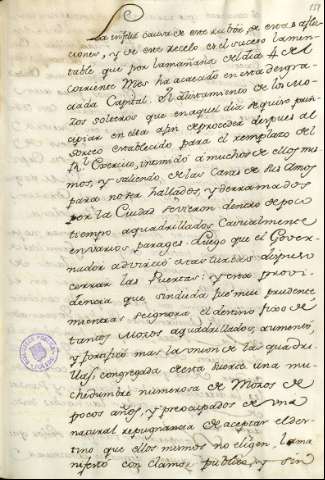 151
La infeliz causa de este rubor, de estas aflic-
ciones, y de este recelo es el suceso lamen-
table que por la mañana del dia 4 del
corriente Mes ha acaecido en esta desgra-
ciada Capital. El alistamiento de los Mo-
zos solteros que en aquel dia se quiso prin-
cipiar en ella a fin de proceder despues al
sorteo establecido para el remplazo del
Rl. Exercito, intimidó a muchos de ellos mis-
mos, y saliendo de las Casas de sus Amos
para no ser hallados, y derramados
por la Ciudad se vieron dentro de poco
tiempo aquadrillados casualmente
en varios parages. Luego que el Gover-
nador advirtió a las dispuso
cerrar las Puertas: y esta provi-
dencia que sin duda fue mui prudente
mientras se ignora el destino fixo de
tantos Mozos aquadrillados, aumentó,
y fortificó mas la union de las quadri-
llas, congregada de esta suerte una mu-
chedumbre numerosa de Mozos de
pocos años, y preocupados de una
natural repugnancia de aceptar el des-
tino que ellos mismos no eligen, la ma-
nifestó con clamor publico, y sin